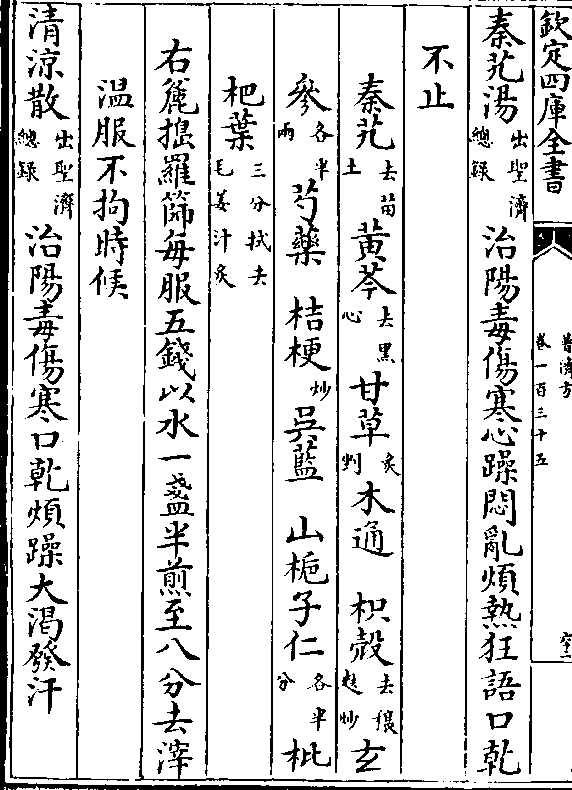 欽定四庫全書
普濟方
卷一百三十五
秦艽湯出聖濟總録治陽毒傷寒心躁悶亂煩熱狂語口乾
不止
秦艽去苗土黄芩去黑心甘草炙剉木通枳殻去穰麩炒玄
參各半兩芍藥桔梗炒吳藍山梔子仁各半分枇
杷葉三分拭去毛姜汁炙
右麄搗羅篩每服五錢以水一盞半煎至八分去滓
温服不拘時候
清涼散出聖濟總録治陽毒傷寒口乾煩躁大渴發汗